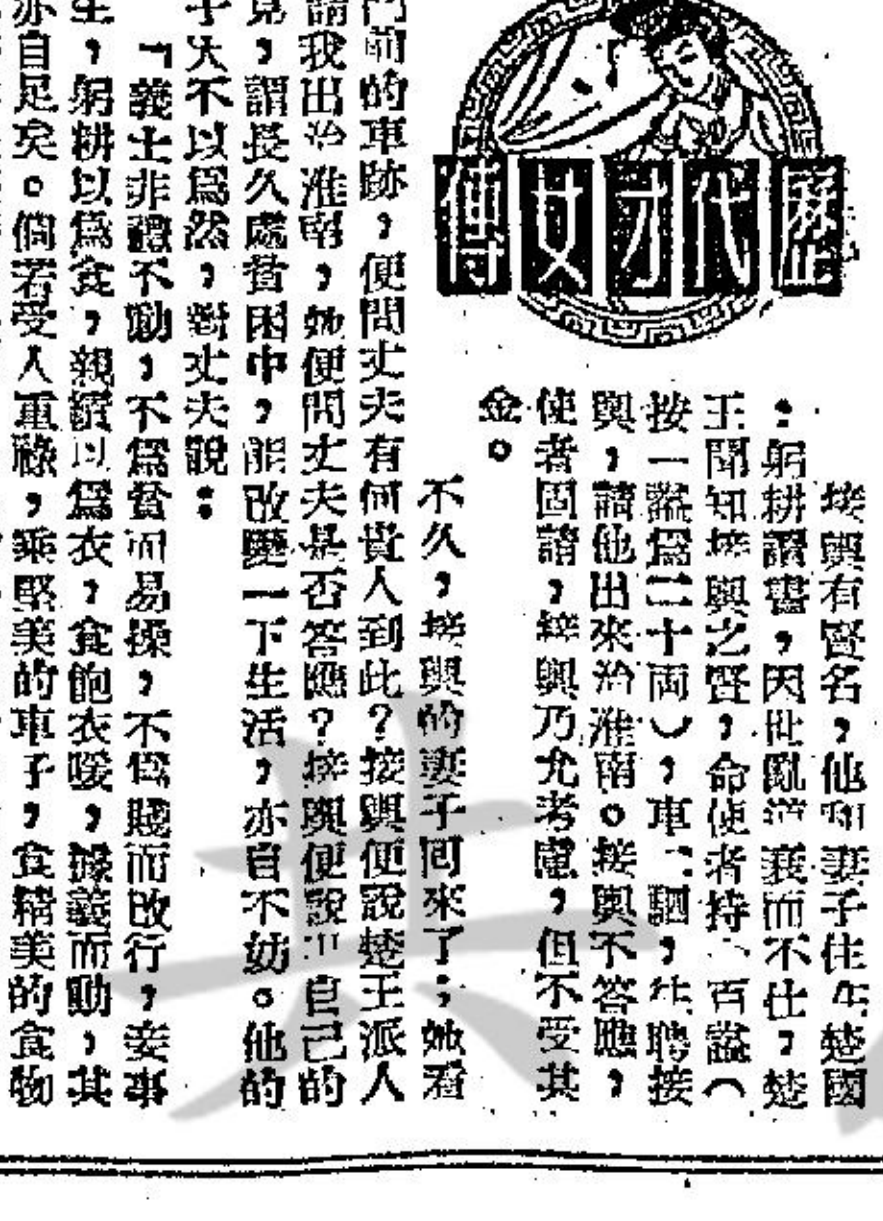 歷代才女傳
接輿有賢名，他和妻子住在楚國
：躬耕讀書，因世亂道衰而不仕，楚
王聞知接輿之賢，命使者持一百鎰（
按一鎰為二十兩），車二駟，往聘接
輿，請他出來治淮南。接輿不答應，
使者固請，接輿乃允考慮，但不受其
金。
不久，接輿的妻子回來了；她看
門前的車跡，便問丈夫有何貴人到此？接輿便說楚王派人
請我出治淮南，她便問丈夫是否答應？接輿便說出自己的
見，謂長久處貧困中，能改變一下生活，亦自不妨。他的
子大不以為然，對丈夫說：
「義士非禮不動，不為貧而易操，不為賤而改行，妾事
生，躬耕以為食，親績以為衣，食飽衣暖，據義而動，其
亦自足矣。倘若受人重祿，乘堅美的車子，食精美的食物
共